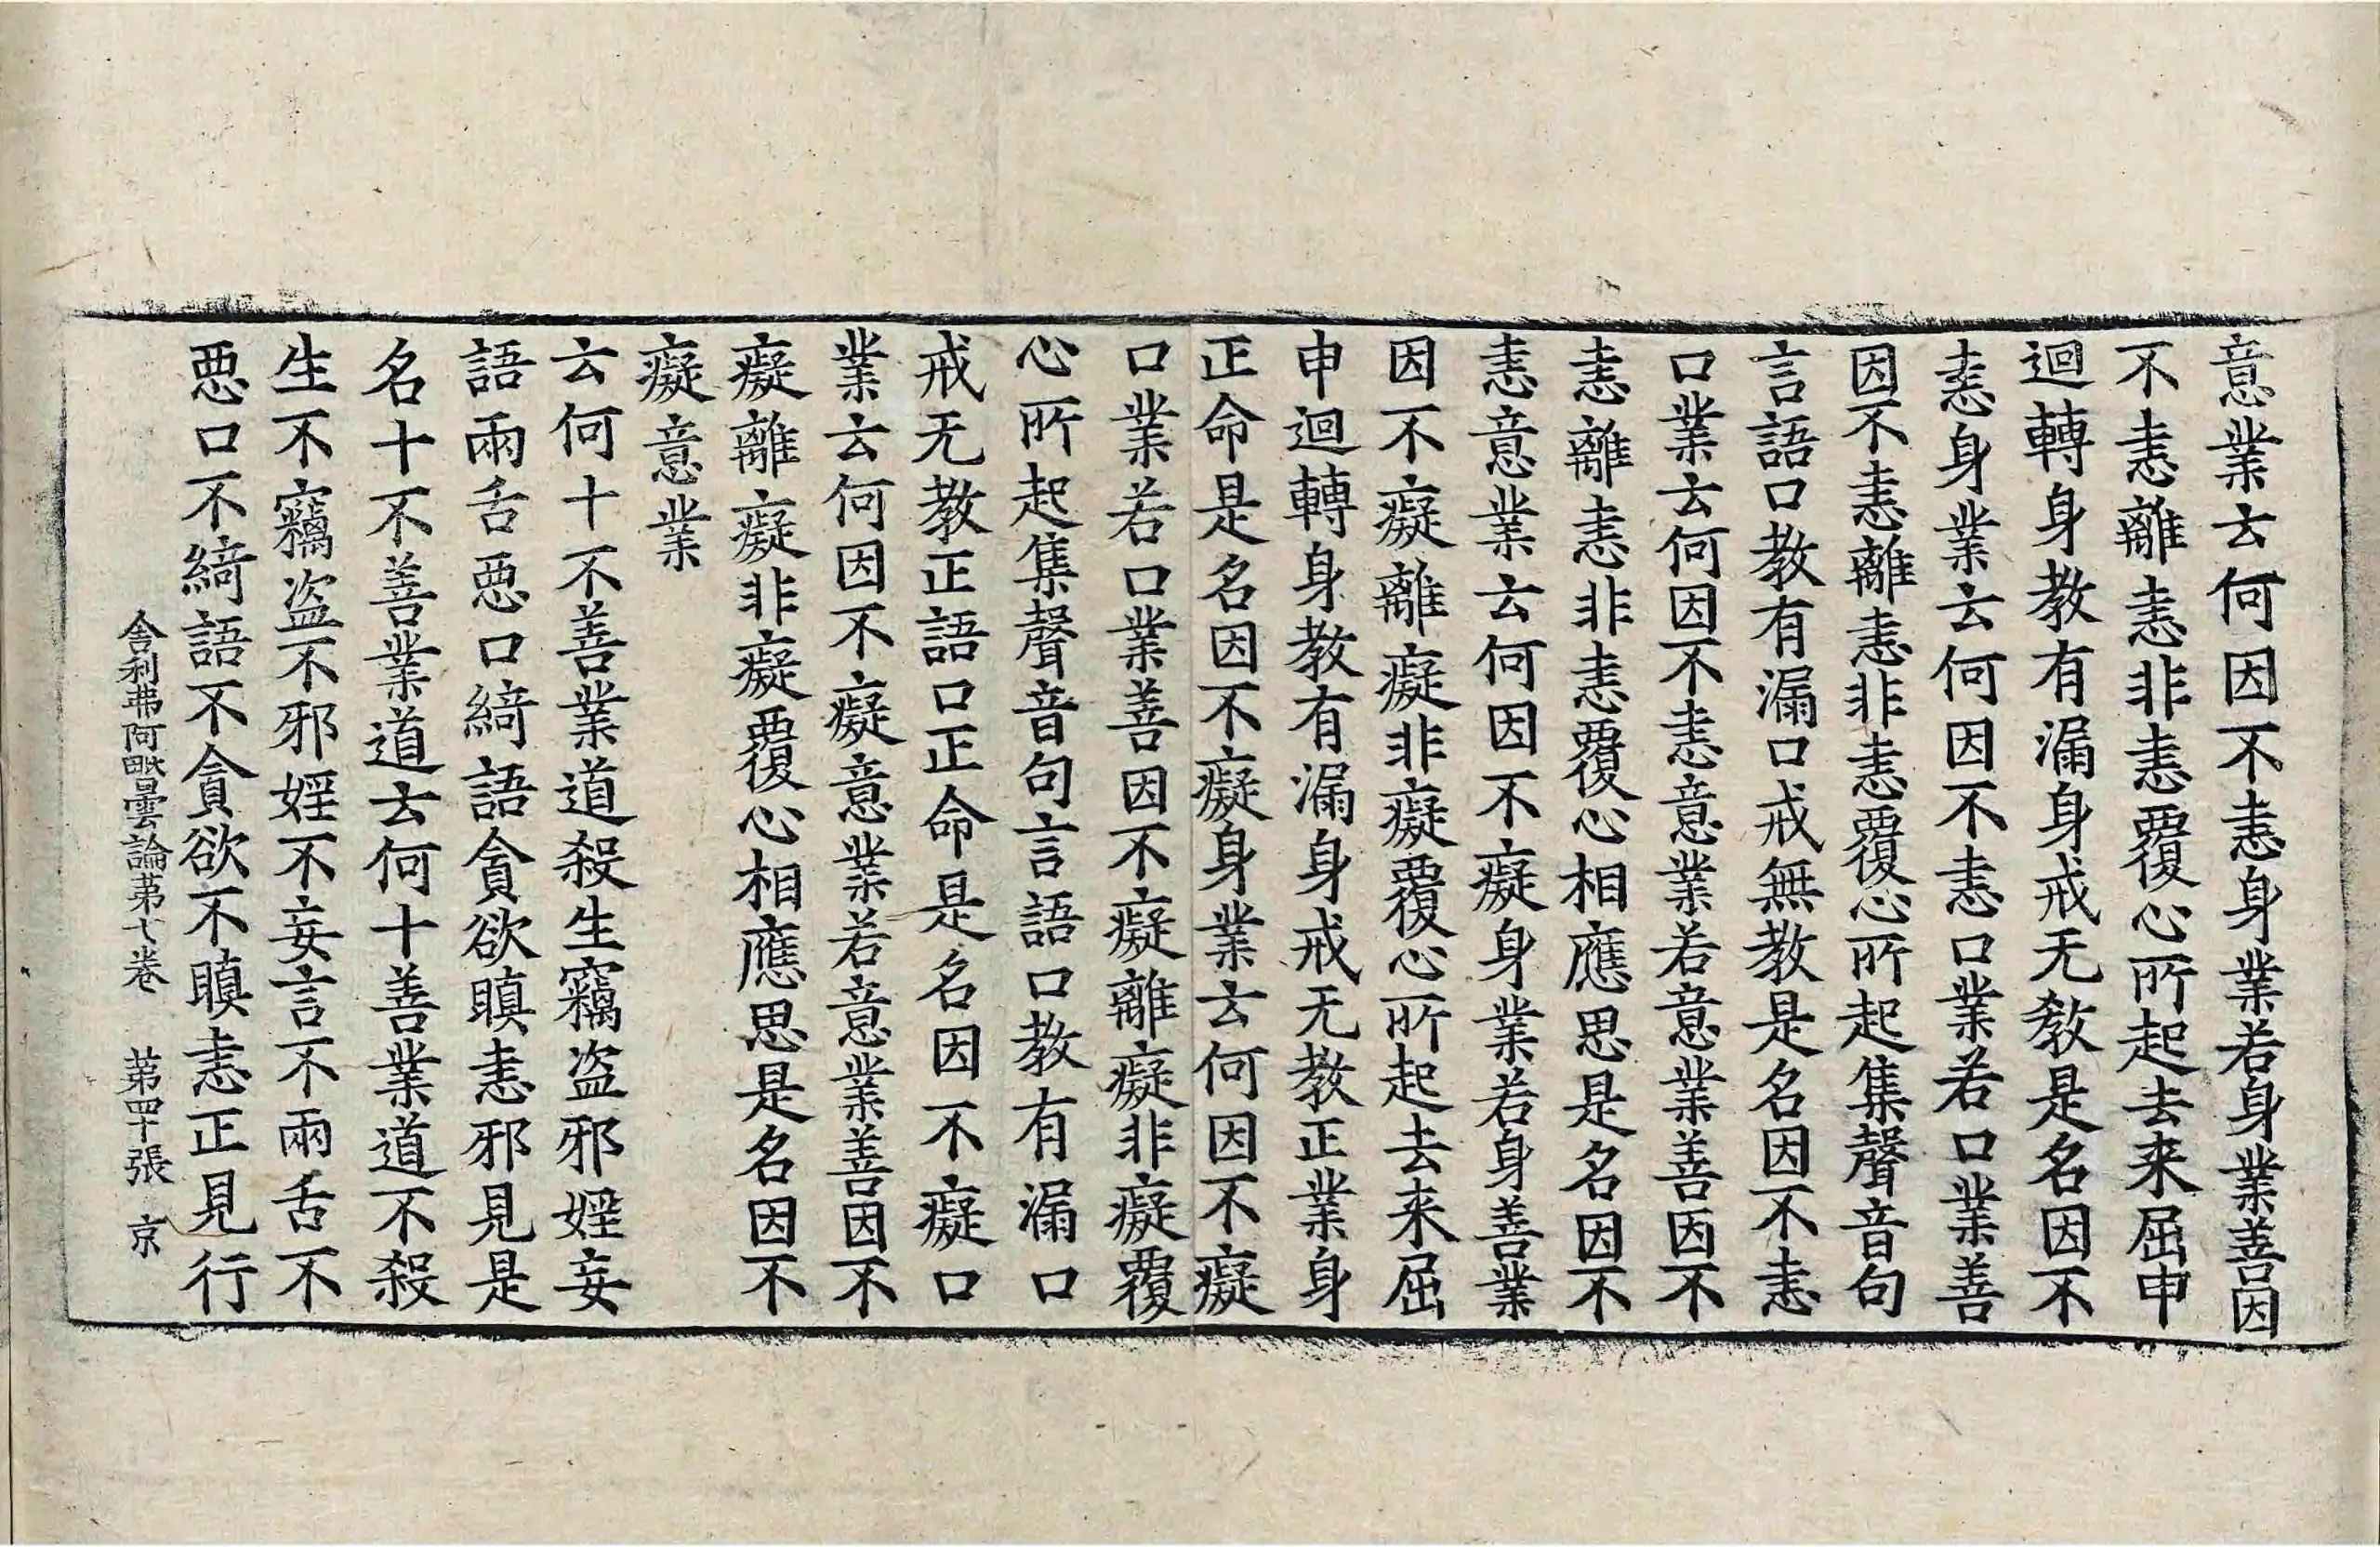 意業云何因不恚身業若身業善因
不恚離恚非恚覆心所起去来屈申
迴轉身教有漏身戒无教是名因不
恚身業云何因不恚口業若口業善
因不恚離恚非恚覆心所起集聲音句
言語口教有漏口戒無教是名因不恚
口業云何因不恚意業若意業善因不
恚離恚非恚覆心相應思是名因不
恚意業云何因不癡身業若身善業
因不癡離癡非癡覆心所起去来屈
申迴轉身教有漏身戒无教正業身
正命是名因不癡身業云何因不癡
口業若口業善因不癡離癡非癡覆
心所起集聲音句言語口教有漏口
戒无教正語口正命是名因不癡口
業云何因不癡意業若意業善因不
癡離癡非癡覆心相應思是名因不
癡意業
云何十不善業道殺生竊盗邪婬妄
語兩舌惡口綺語貪欲瞋恚邪見是
名十不善業道云何十善業道不殺
生不竊盗不邪婬不妄言不兩舌不
惡口不綺語不貪欲不瞋恚正見行
舍利弗阿毗曇論第七卷 第四十張 京